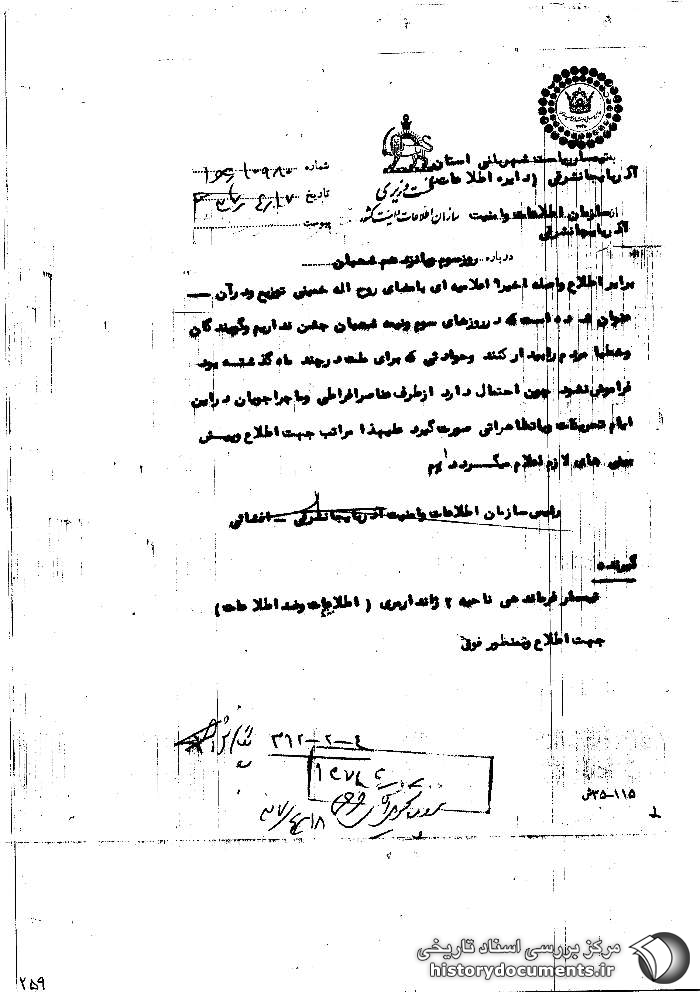 شماره
تاریخ ۳۷/۴/۱۷
پیوست
به تیمسار ریاست شهربانی استان
آذربایجانشرقی (دایره اطلاعات)
نخست وزیری
سازمان اطلاعات و امنیت کشور
از سازمان اطلاعات و امنیت
آذربایجانشرقی
درباره روز سوم و پانزدهم شعبان
برابر اطلاع واصله اخیرا اعلامیه ای بامضای روح اله خمینی توزیع و در آن
عنوان شده است که در روزهای سوم و نیمه شعبان جشن نداریم و گویندگان
و خطبا مردم را بیدار کنند و حوادثی که برای ملت در چند ماه گذشته بود
فراموش نشود چون احتمال دارد از طرف عناصر افراطی و ماجراجویان در این
ایام تحریکات و یا تظاهراتی صورت گیرد علیهذا مراتب جهت اطلاع و پیش
بینی های لازم اعلام میگردد
رئیس سازمان اطلاعات و امنیت آذربایجانشرقی
گیرنده
تیمسار فرماندهی ناحیه ۲ ژاندارمری (اطلاعات و ضد اطلاعات)
جهت اطلاع و بمنظور فوق
۳۱۲-۲-۴
۳۵-۱۱۵ش
مرکز بررسی اسناد تاریخی
historydocuments.ir
۲۵۹